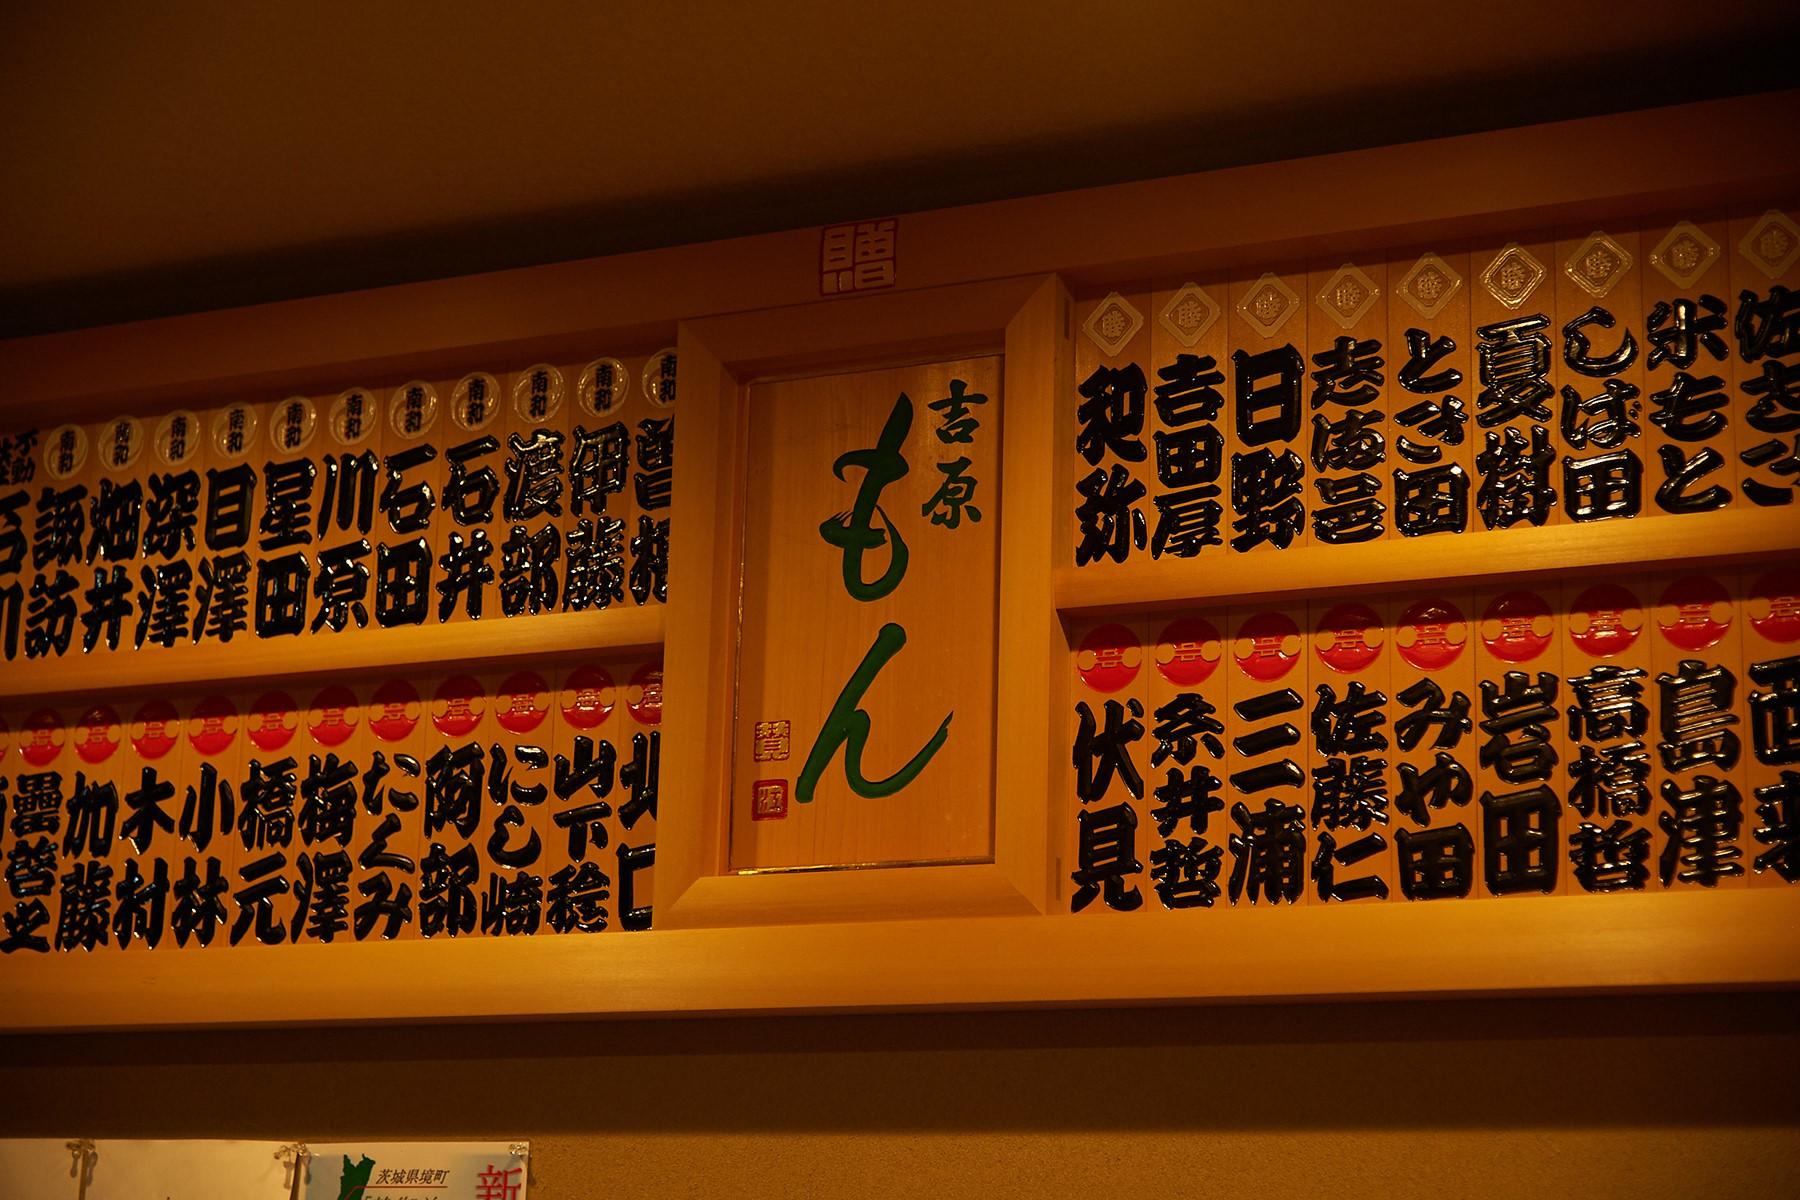 贈
吉原
もん
南和
諏訪
南和
畑井
南和
深澤
南和
目澤
南和
星田
南和
川原
南和
石田
南和
石井
南和
渡部
南和
伊藤
南和
睦
和弥
睦
吉田厚
睦
日野
睦
睦
睦
夏樹
睦
しば田
睦
米もと
睦
加藤
木村
小林
橋元
梅澤
たくみ
阿部
にし崎
山下稔
北口
伏見
糸井哲
三浦
佐藤仁
みや田
岩田
高橋哲
島津
茨城県境町
新